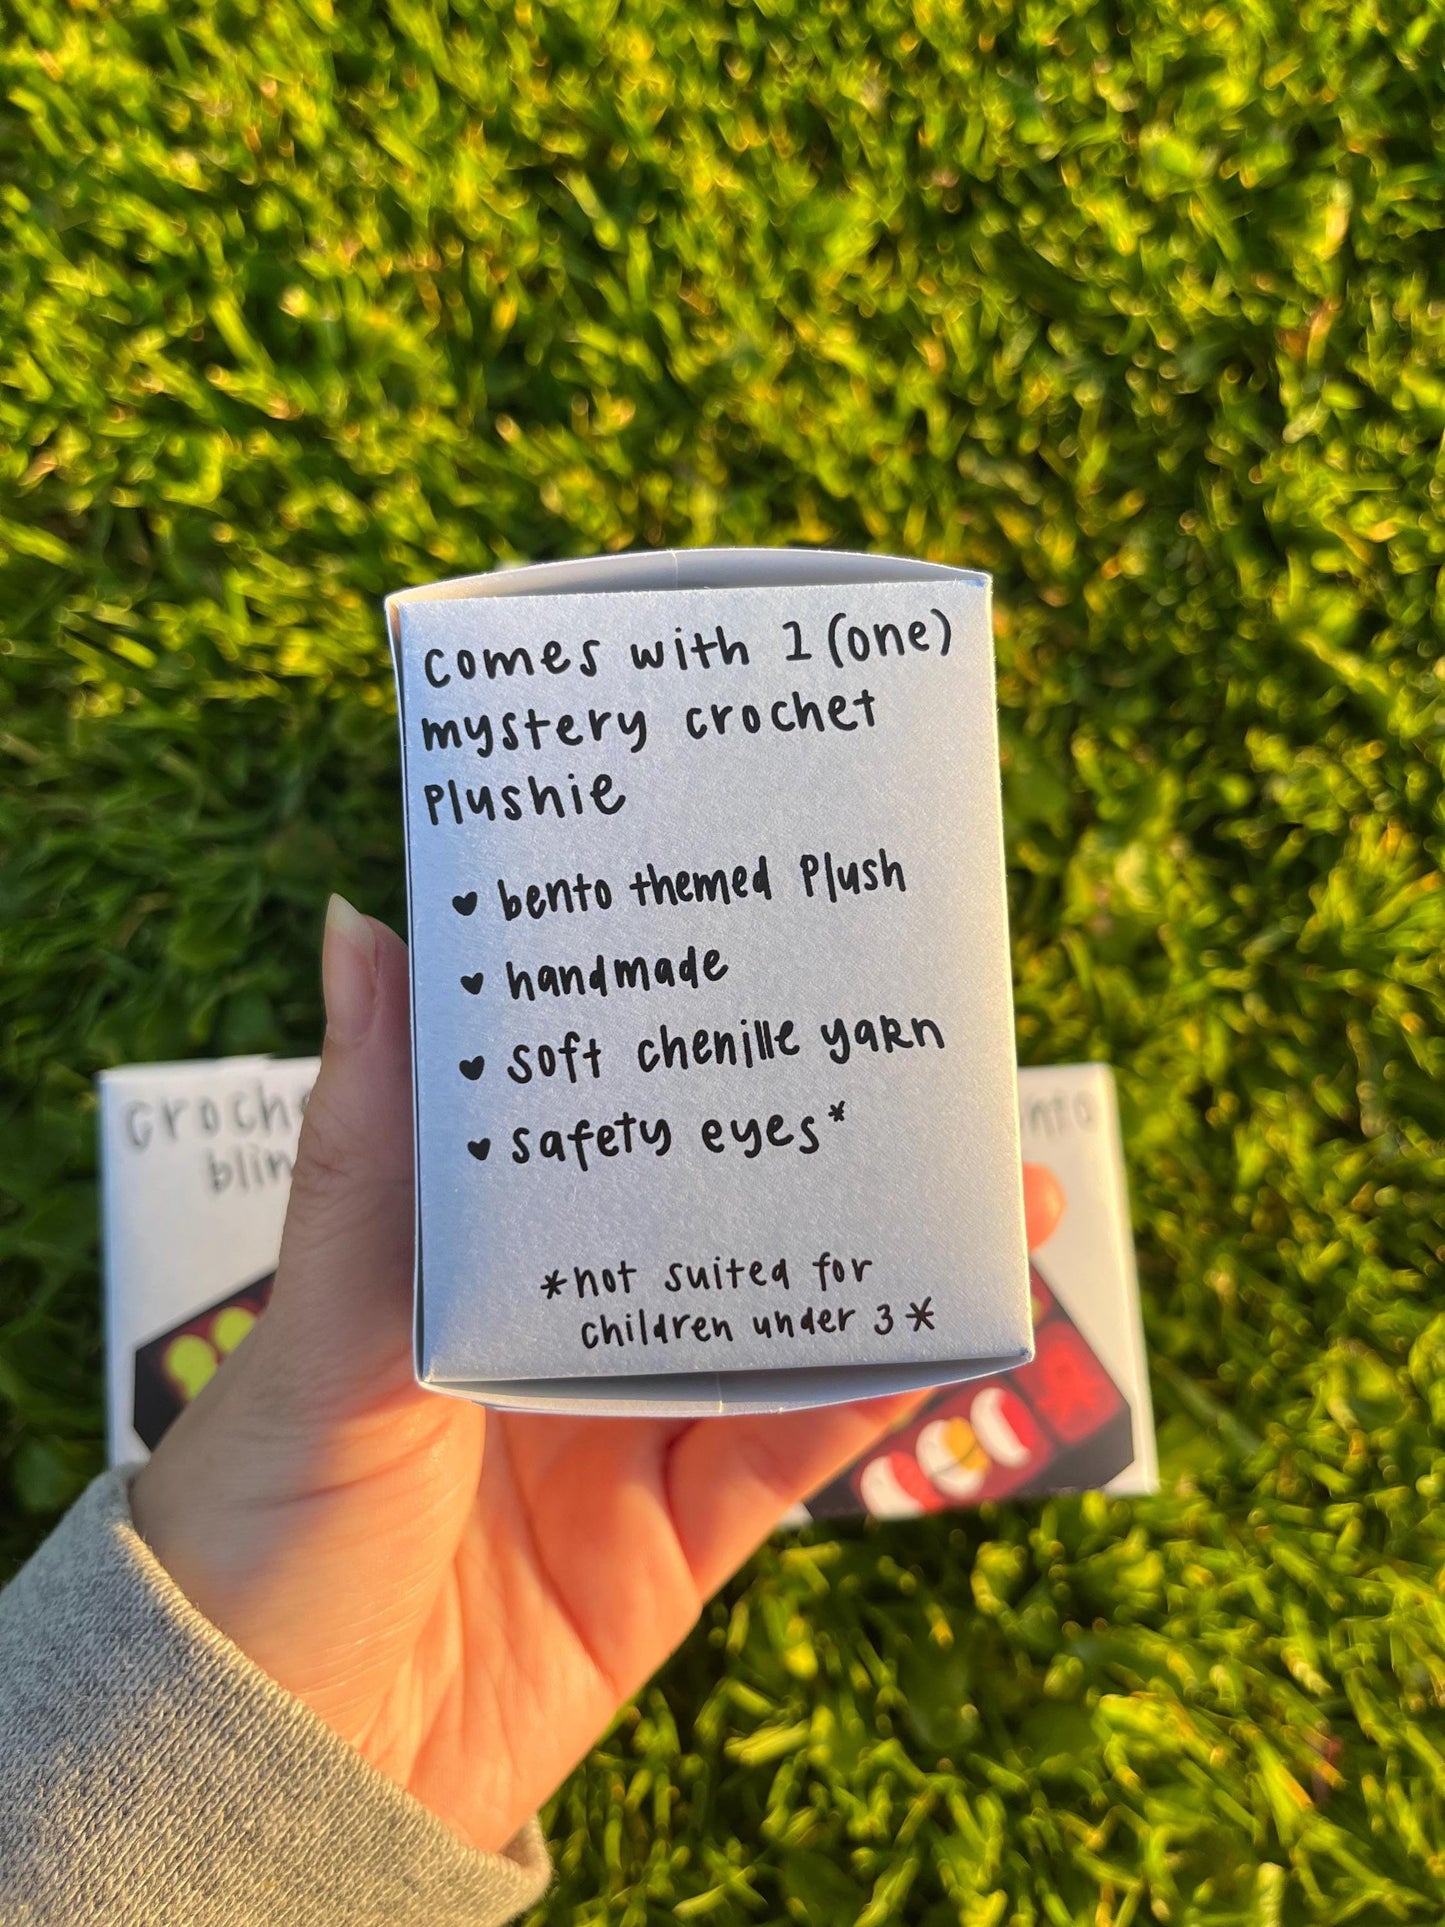 comes with 1 (one)
mystery crochet
plushie
♥ bento themed plush
♥ handmade
♥ soft chenille yarn
♥ safety eyes*
*not suited for
children under 3*